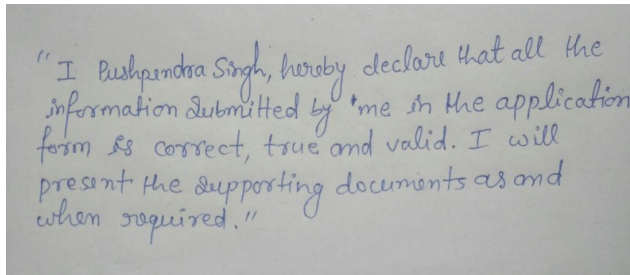 "I Pushpendra Singh, hereby declare that all the
information submitted by 'me in the application
form is correct, true and valid. I will
present the supporting documents as and
when required."